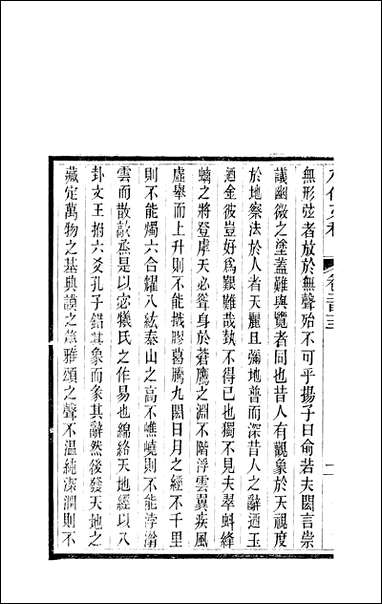 無形弦者放於無聲殆不可乎揚子曰俞若夫閎言崇
議幽微之塗蓋難與覽者同也昔人有觀象於天視度
於地察法於人者天麗且彌地普而深昔人之辭迺玉
迺金彼豈好爲艱難哉埶不得已也獨不見夫翠虯絳
螭之將登虖天必聳身於蒼鷹之淵不階浮雲翼疾風
虛舉而上升則不能撠膠葛騰九閎日月之經不千里
則不能燭六合耀八紘泰山之高不嶕嶢則不能浡滃
雲而散歊烝是以宓犧氏之作易也綿絡天地經以八
卦文王拊六爻孔子錯其象而彖其辭然後發天地之
藏定萬物之基典謨之篇雅頌之聲不溫純深潤則不